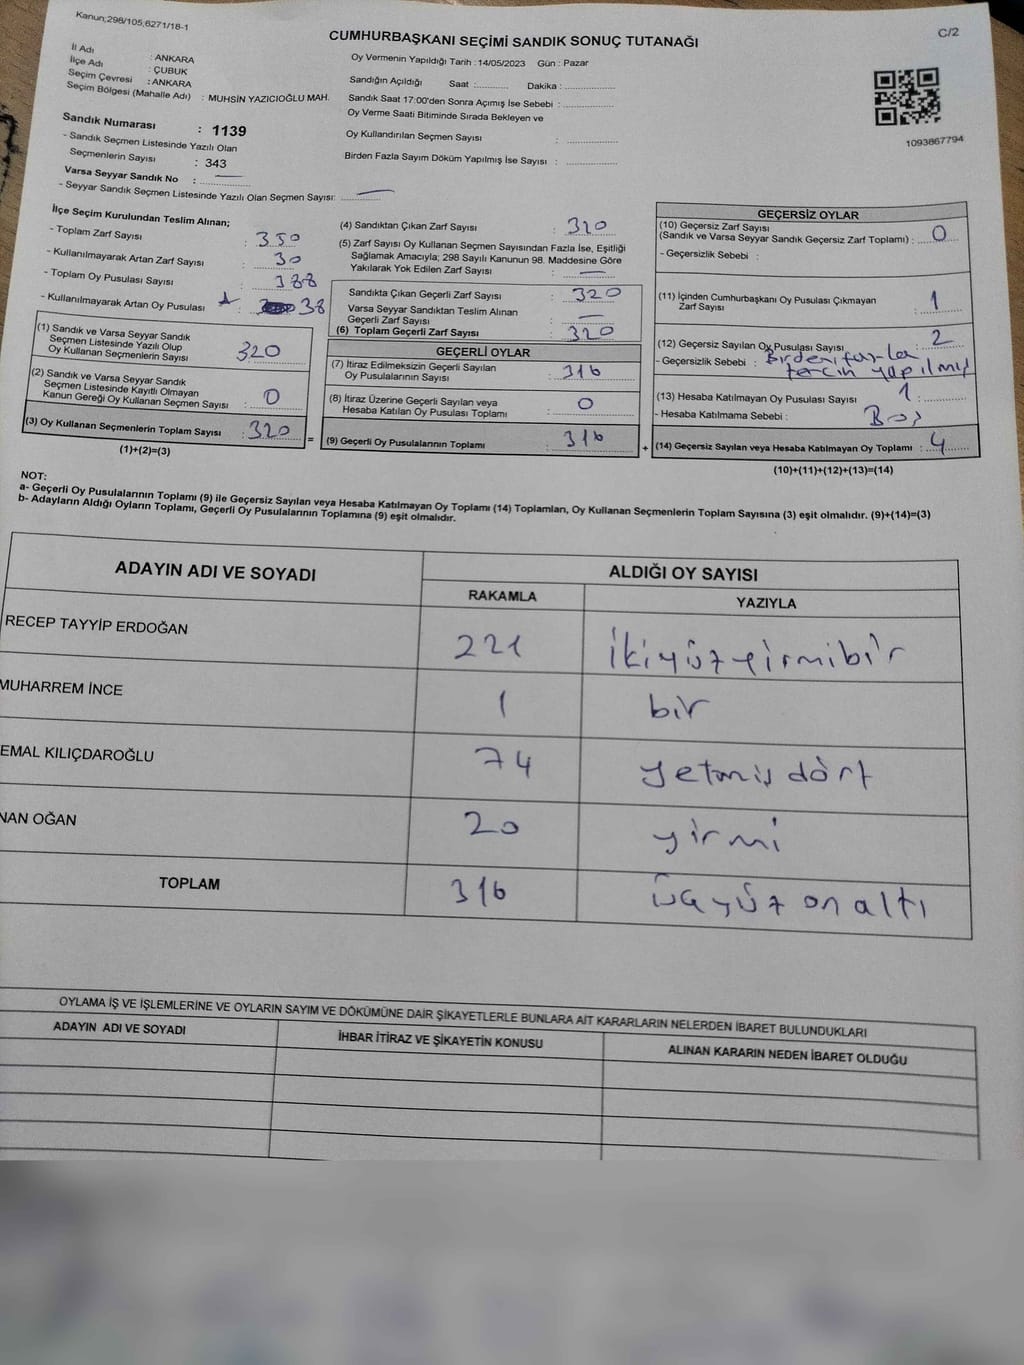 Kanun;298/105,6271/18-1
C/2
CUMHURBAŞKANI SEÇİMİ SANDIK SONUÇ TUTANAĞI
İl Adı : ANKARA
İlçe Adı : ÇUBUK
Seçim Çevresi : ANKARA
Seçim Bölgesi (Mahalle Adı) : MUHSİN YAZICIOĞLU MAH.
Oy Vermenin Yapıldığı Tarih : 14/05/2023 Gün : Pazar
Sandığın Açıldığı Saat :........... Dakika :................
Sandık Saat 17:00'den Sonra Açımış İse Sebebi :................
Oy Verme Saati Bitiminde Sırada Bekleyen ve
Oy Kullandırılan Seçmen Sayısı :................
Birden Fazla Sayım Döküm Yapılmış İse Sayısı :................
1093867794
Sandık Numarası : 1139
- Sandık Seçmen Listesinde Yazılı Olan
Seçmenlerin Sayısı : 343
Varsa Seyyar Sandık No : —
- Seyyar Sandık Seçmen Listesinde Yazılı Olan Seçmen Sayısı: —
İlçe Seçim Kurulundan Teslim Alınan;
- Toplam Zarf Sayısı : 350
- Kullanılmayarak Artan Zarf Sayısı : 30
- Toplam Oy Pusulası Sayısı : 388
- Kullanılmayarak Artan Oy Pusulası : 38
(1) Sandık ve Varsa Seyyar Sandık
Seçmen Listesinde Yazılı Olup
Oy Kullanan Seçmenlerin Sayısı : 320
(2) Sandık ve Varsa Seyyar Sandık
Seçmen Listesinde Kayıtlı Olmayan
Kanun Gereği Oy Kullanan Seçmen Sayısı : 0
(3) Oy Kullanan Seçmenlerin Toplam Sayısı : 320 =
(1)+(2)=(3)
(4) Sandıktan Çıkan Zarf Sayısı : 320
(5) Zarf Sayısı Oy Kullanan Seçmen Sayısından Fazla İse, Eşitliği
Sağlamak Amacıyla; 298 Sayılı Kanunun 98. Maddesine Göre
Yakılarak Yok Edilen Zarf Sayısı : —
Sandıkta Çıkan Geçerli Zarf Sayısı : 320
Varsa Seyyar Sandıktan Teslim Alınan
Geçerli Zarf Sayısı : —
(6) Toplam Geçerli Zarf Sayısı : 320
GEÇERLİ OYLAR
(7) İtiraz Edilmeksizin Geçerli Sayılan
Oy Pusulalarının Sayısı : 316
(8) İtiraz Üzerine Geçerli Sayılan veya
Hesaba Katılan Oy Pusulası Toplamı : 0
(9) Geçerli Oy Pusulalarının Toplamı : 316 +
GEÇERSİZ OYLAR
(10) Geçersiz Zarf Sayısı
(Sandık ve Varsa Seyyar Sandık Geçersiz Zarf Toplamı) : 0
- Geçersizlik Sebebi :
(11) İçinden Cumhurbaşkanı Oy Pusulası Çıkmayan
Zarf Sayısı : 1
(12) Geçersiz Sayılan Oy Pusulası Sayısı : 2
- Geçersizlik Sebebi : Birden fazla
tercih yapılmış
(13) Hesaba Katılmayan Oy Pusulası Sayısı : 1
- Hesaba Katılmama Sebebi : Boş
(14) Geçersiz Sayılan veya Hesaba Katılmayan Oy Toplamı : 4
(10)+(11)+(12)+(13)=(14)
NOT:
a- Geçerli Oy Pusulalarının Toplamı (9) ile Geçersiz Sayılan veya Hesaba Katılmayan Oy Toplamı (14) Toplamları, Oy Kullanan Seçmenlerin Toplam Sayısına (3) eşit olmalıdır. (9)+(14)=(3)
b- Adayların Aldığı Oyların Toplamı, Geçerli Oy Pusulalarının Toplamına (9) eşit olmalıdır.
ADAYIN ADI VE SOYADI ALDIĞI OY SAYISI
RAKAMLA YAZIYLA
RECEP TAYYİP ERDOĞAN 221 ikiyüzyirmibir
MUHARREM İNCE 1 bir
EMAL KILIÇDAROĞLU 74 yetmiş dört
NAN OĞAN 20 yirmi
TOPLAM 316 üçyüz on altı
OYLAMA İŞ VE İŞLEMLERİNE VE OYLARIN SAYIM VE DÖKÜMÜNE DAİR ŞİKAYETLERLE BUNLARA AİT KARARLARIN NELERDEN İBARET BULUNDUKLARI
ADAYIN ADI VE SOYADI İHBAR İTİRAZ VE ŞİKAYETİN KONUSU ALINAN KARARIN NEDEN İBARET OLDUĞU